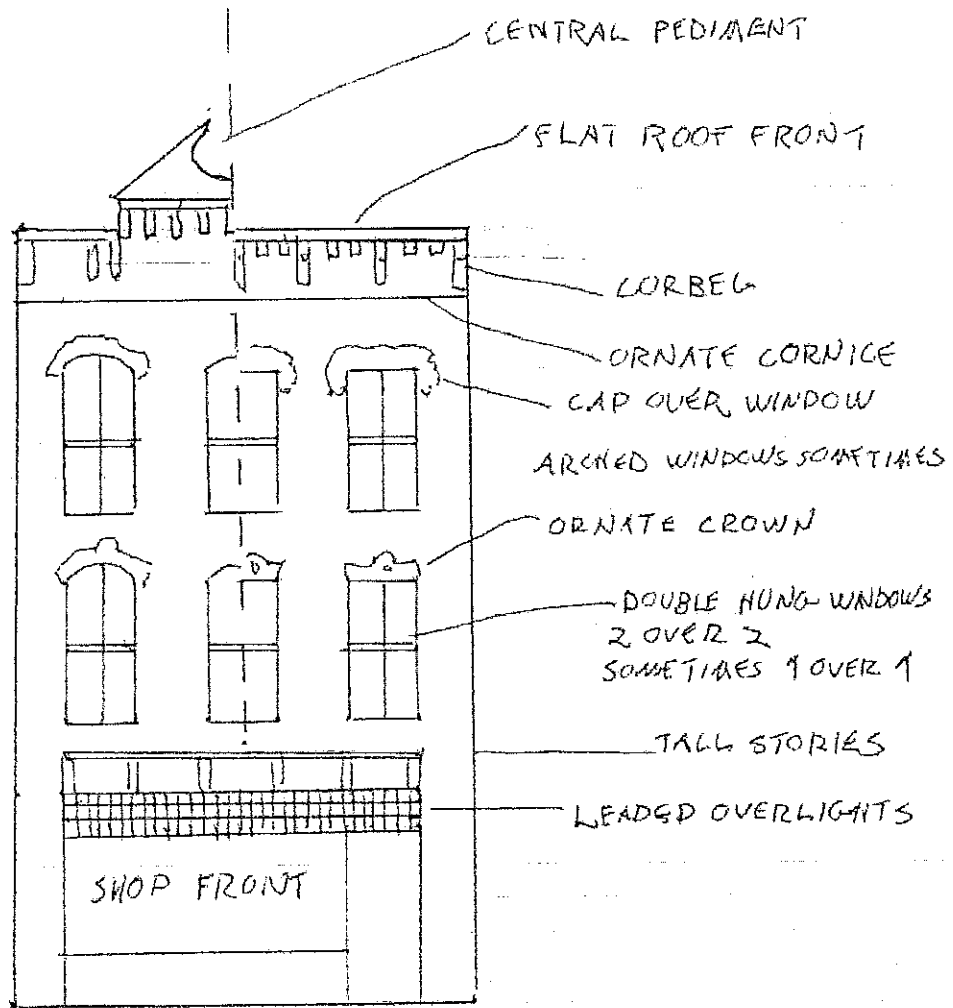 CENTRAL PEDIMENT
FLAT ROOF FRONT
CORBEL
ORNATE CORNICE
CAP OVER WINDOW
ARCHED WINDOWS SOMETIMES
ORNATE CROWN
DOUBLE HUNG WINDOWS
2 OVER 2
SOMETIMES 1 OVER 1
TALL STORIES
LEADED OVERLIGHTS
SHOP FRONT